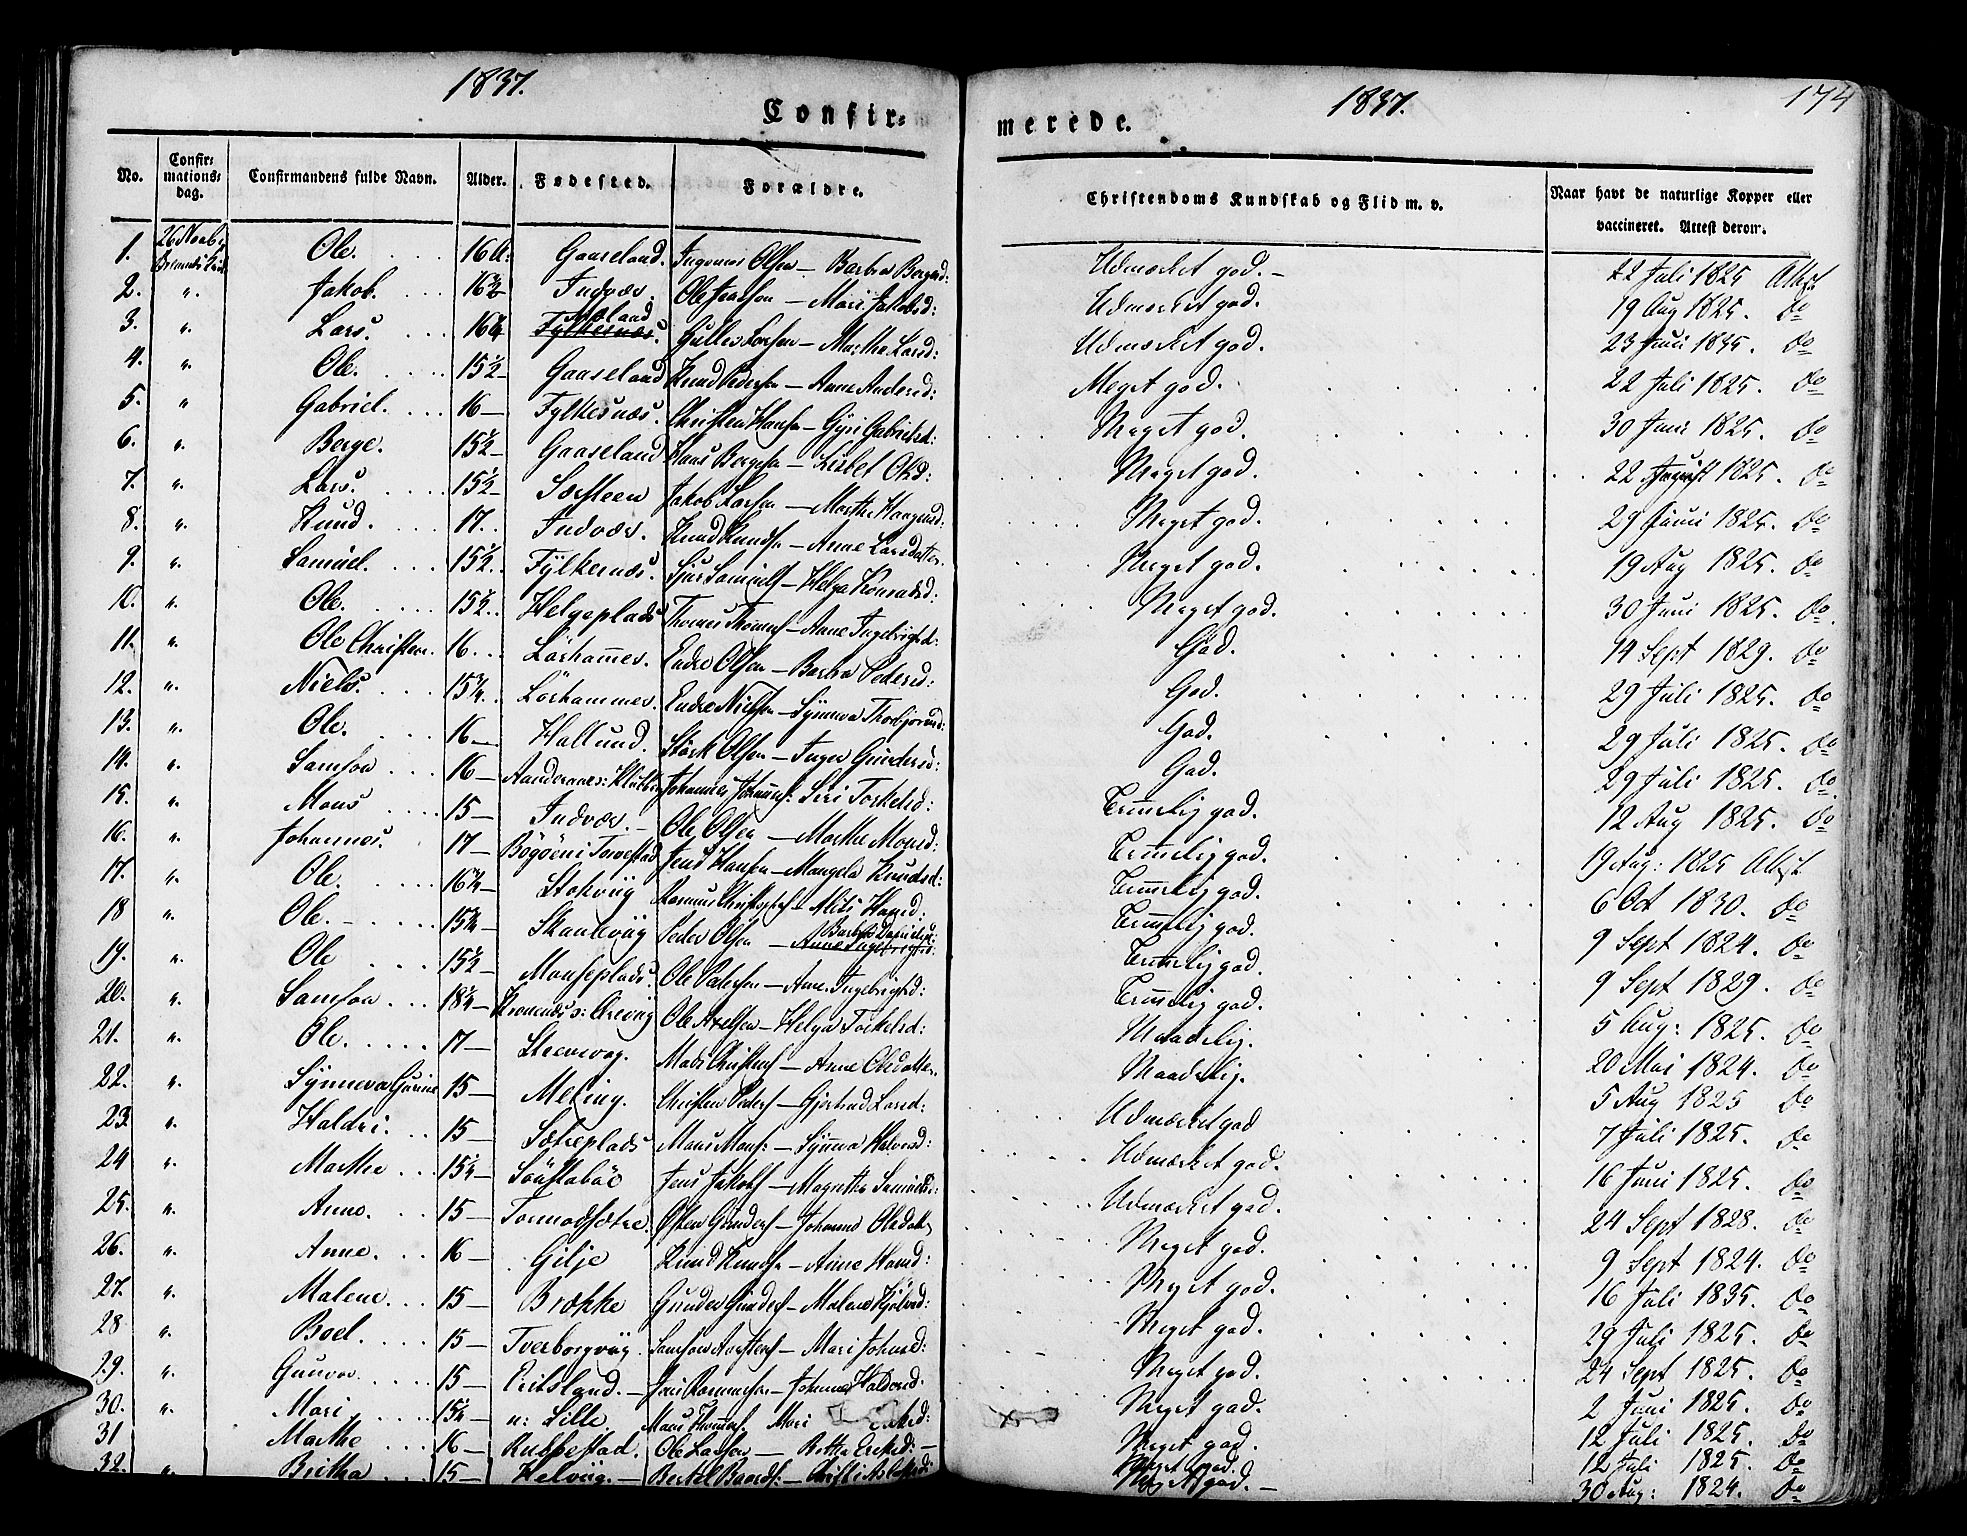 1837.
1837.
174
Confir=
merede.
No. Confirmations= dag. Confirmandens fulde Navn. Alder. Fødested. Forældre. Christendoms Kundskab og Flid m. v. Naar havt de naturlige Kopper eller vaccineret. Attest derom.
1. 26 Ole. Gaaseland. Olsen — Barbra Udmærket god. — 22 Juli 1825 Attst.
2. „ Jakob. Indvær. Ole — Mari Jakobsd: Udmærket god. 19 Aug 1825. do
3. „ Lars. Fylkesnæs. Larsen — Marthe Larsd: Udmærket god. 23 Juni 1835. do
4. „ Ole. 15½— Gaaseland Knud Pedersen — Anne Andersd: Meget god. 22 Juli 1825. do
5. „ Gabriel. 16— Fylkesnæs. Christen Hansen — Gyri Gabrielsd: Meget god. 30 Juni 1825. do
6. „ Berge. 15½— Gaaseland Hans Bergesen — Lisbet Olsd: Meget god. 22 August 1825. do
7. „ Lars. 15½— Jakob Larsen — Marthe Meget god. 29 Juni 1825. do
8. „ Knud. 17. Indvær. Knud Knuds. — Anne Larsdatter. Meget god. 19 Aug 1825. do
9. „ Samuel. 15½. Fylkesnæs. Sjur Samuels. — Helga Meget god. 30 Juni 1825. do
10. „ Ole. 15½. Helgeplads Thomas Thomass. — Anne Ingebrigtsd: God. 14 Sept 1829. do
11. „ Ole Christen. 16. Lörhammer. Endre Olsen — Barbra Pedersd: God. 29 Juli 1825. do
12. „ Niels. 15¾. Lörhammer. Endre Nielsen — Synneva God. 29 Juli 1825. do
13. „ Ole. 16— Hallund. Störk Olsen — Inger Gundersd: God. 29 Juli 1825. do
14. „ Samson 16— Johannes Siri Torkelsd: Temmelig god. 12 Aug 1825. do
15. „ Mons 15— Indvær. — Ole Olsen — Marthe Monsd: Temmelig god. 19 Aug: 1825 Attst.
16. „ Johannes. 17— Jens Hansen — Mangela Knudsd: Temmelig god. 6 Oct 1830. do
17. „ Ole. 16¾— Stokviig Rasmus — Temmelig god. 9 Sept 1824. do
18 „ Ole. 15¾— Skaneviig Peder Olsen — Barbra Danielsd. Temmelig god. 9 Sept 1829. do
19. „ Ole 15½— Monseplads. Ole Pedersen — Anne Ingebrigtsd: Temmelig god. 5 Aug: 1825. do
20. „ Samson 18¼— Ole Axelsen — Helga Torkelsd: Maadelig. 20 Mai 1824. do
21. „ Ole. 17— Mads Christens. — Anne Olsdatter. Maadelig. 5 Aug 1825 do
22. „ Synneva Gurine 15— Meling. Christen Peders. — Gjertrud Larsd: Udmærket god 7 Juli 1825. do
23 „ Haldri. 15— Sætreplads Mons Mons: — Synneva Halversd: Udmærket god. 16 Juni 1825. do
24 „ Marthe 15¼— Jens Jakobs. — Magnethe Udmærket god. 24 Sept 1828. do
25. „ Anne. 15— Tormodsætre. Östen Gunders. — Johanne Olsdatt. Meget god. 9 Sept 1824. do
26. „ Anne. 16— Gilje Knud Knudsen — Anne Hansd: Meget god. 16 Juli 1835. do
27. „ Malene. 15— Brække Gunder Gunders. — Malene Meget god. 29 Juli 1825. do
28 „ Boel. 15— Tverborgviig Samson — Mari Johnsd: Meget god. 24 Sept 1825. do
29. „ Gunvor. 15— Johanne Haldorsd. Meget god. 2 Juni 1825. do
30. „ Mari. 15¼— n: Lille Mari Meget god. 12 Juli 1825. do
31 Marthe 16— Rubbestad. Ole Larsen — Meget god. 12 Juli 1825. do
32. „ Britha 15— Helviig. — Bertel — Meget god. — 30 Aug: 1824. do